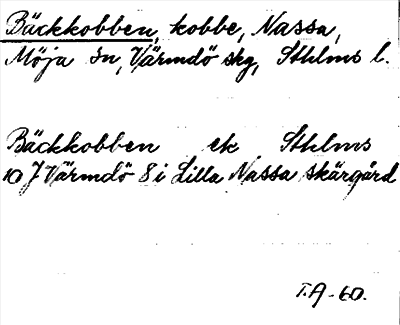 Bäckkobben, kobbe, Nassa,
Möja sn, Värmdö skg, Sthlms l.
Bäckkobben ek Sthlms
10 J Värmdö S i Lilla Nassa skärgård
T.A-60.